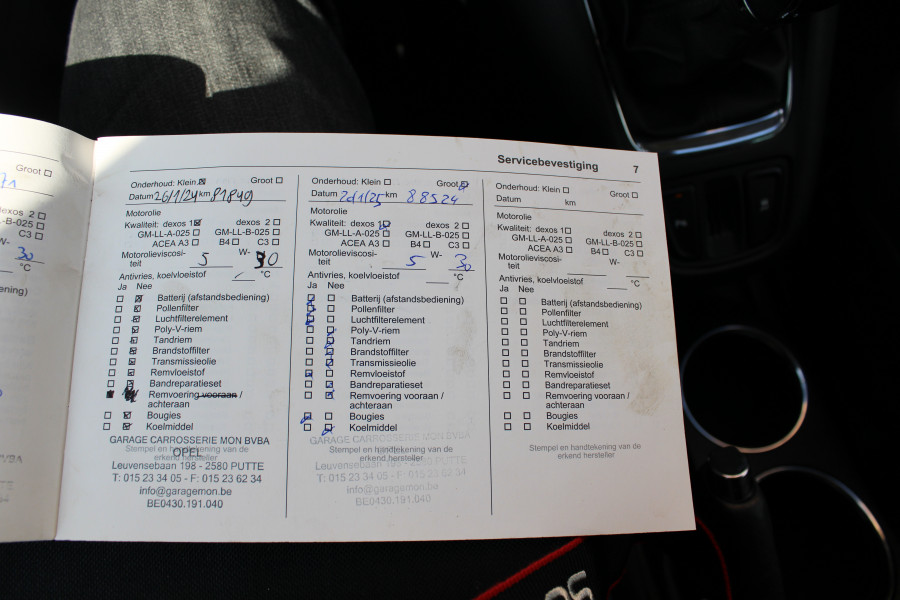 Servicebevestiging 7
Groot
dexos 2
GM-LL-B-025
C3
W-
30
°C
Onderhoud: Klein Groot
Datum 26/1/24 km 81849
Motorolie
Kwaliteit: dexos 1 dexos 2
GM-LL-A-025 GM-LL-B-025
ACEA A3 B4 C3
Motorolieviscosi-
teit 5 W- 30
Antivries, koelvloeistof °C
Ja Nee
Batterij (afstandsbediening)
Pollenfilter
Luchtfilterelement
Poly-V-riem
Tandriem
Brandstoffilter
Transmissieolie
Remvloeistof
Bandreparatieset
Remvoering vooraan /
achteraan
Bougies
Koelmiddel
GARAGE CARROSSERIE MON BVBA
OPEL
Stempel en handtekening van de
erkend hersteller
Leuvensebaan 198 - 2580 PUTTE
T: 015 23 34 05 - F: 015 23 62 34
info@garagemon.be
BE0430.191.040
Onderhoud: Klein Groot
Datum km 88524
Motorolie
Kwaliteit: dexos 1 dexos 2
GM-LL-A-025 GM-LL-B-025
ACEA A3 B4 C3
Motorolieviscosi-
teit 5 W- 30
Antivries, koelvloeistof °C
Ja Nee
Batterij (afstandsbediening)
Pollenfilter
Luchtfilterelement
Poly-V-riem
Tandriem
Brandstoffilter
Transmissieolie
Remvloeistof
Bandreparatieset
Remvoering vooraan /
achteraan
Bougies
Koelmiddel
GARAGE CARROSSERIE MON BVBA
Stempel en handtekening van de
erkend hersteller
Leuvensebaan 198 - 2580 PUTTE
T: 015 23 34 05 - F: 015 23 62 34
info@garagemon.be
BE0430.191.040
Onderhoud: Klein Groot
Datum km
Motorolie
Kwaliteit: dexos 1 dexos 2
GM-LL-A-025 GM-LL-B-025
ACEA A3 B4 C3
Motorolieviscosi-
teit W-
Antivries, koelvloeistof °C
Ja Nee
Batterij (afstandsbediening)
Pollenfilter
Luchtfilterelement
Poly-V-riem
Tandriem
Brandstoffilter
Transmissieolie
Remvloeistof
Bandreparatieset
Remvoering vooraan /
achteraan
Bougies
Koelmiddel
Stempel en handtekening van de
erkend hersteller